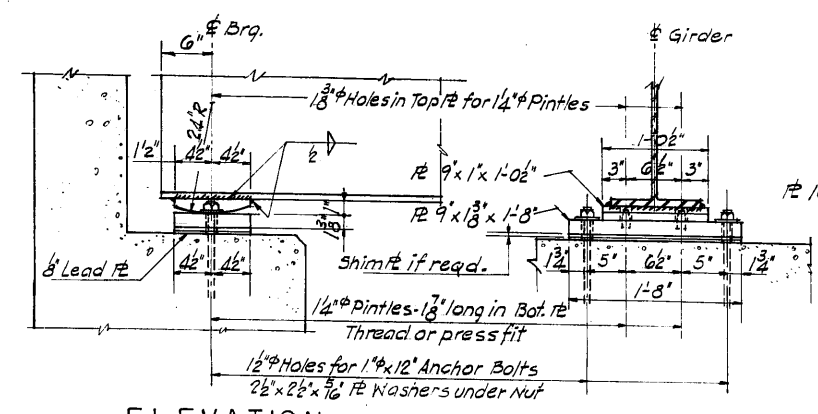 ℄ Brg.
6"
℄ Girder
1 3/8"ϕ Holes in Top ⅊ for 1 1/4"ϕ Pintles
24"R
1-0 1/2"
1 1/2"
4 1/2" 4 1/2"
1/2
3" 6 1/2" 3"
⅊ 9" x 1" x 1'-0 1/2"
⅊ 9" x 1 3/8" x 1'-8"
1"
1 3/8"
1/8" Lead ⅊
4 1/2" 4 1/2"
Shim ⅊ if reqd.
1 3/4" 5" 6 1/2" 5" 1 3/4"
1'-8"
1 1/4"ϕ Pintles - 1 7/8" long in Bot. ⅊
Thread or press fit
1 1/2"ϕ Holes for 1"ϕ x 12" Anchor Bolts
2 1/2" x 2 1/2" x 5/16" ⅊ Washers under Nut
ELEVATION